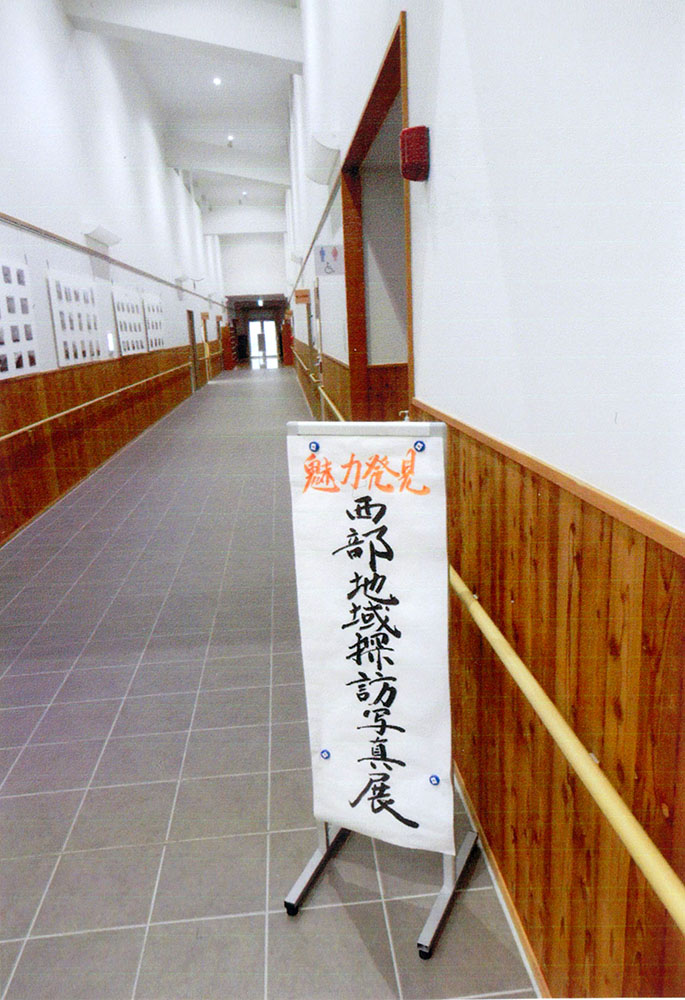 魅力発見
西部地域探訪写真展